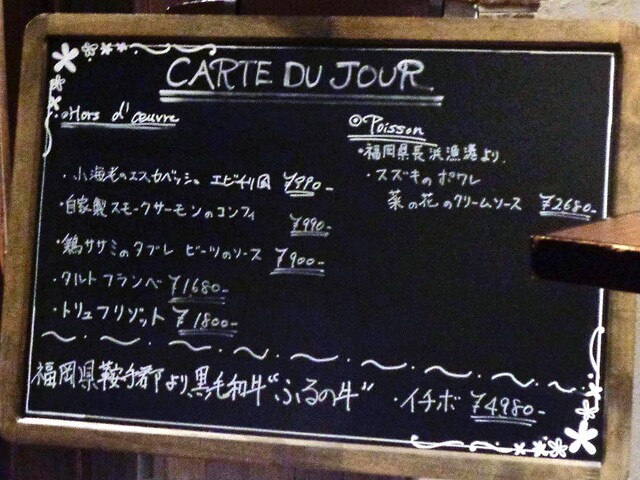 CARTE DU JOUR
◎Hors d'œuvre
・小海老のエスカベッシュ エビチリ風 ¥990-
・自家製スモークサーモンのコンフィ ¥990-
・鶏ササミのタブレ ビーツのソース ¥900-
・タルトフランベ ¥1680-
・トリュフリゾット ¥1800-
◎Poisson
・福岡県長浜漁港より
・スズキのポワレ
菜の花のクリームソース ¥2680-
福岡県鞍手郡より黒毛和牛"ふるの牛" ・イチボ ¥4980-